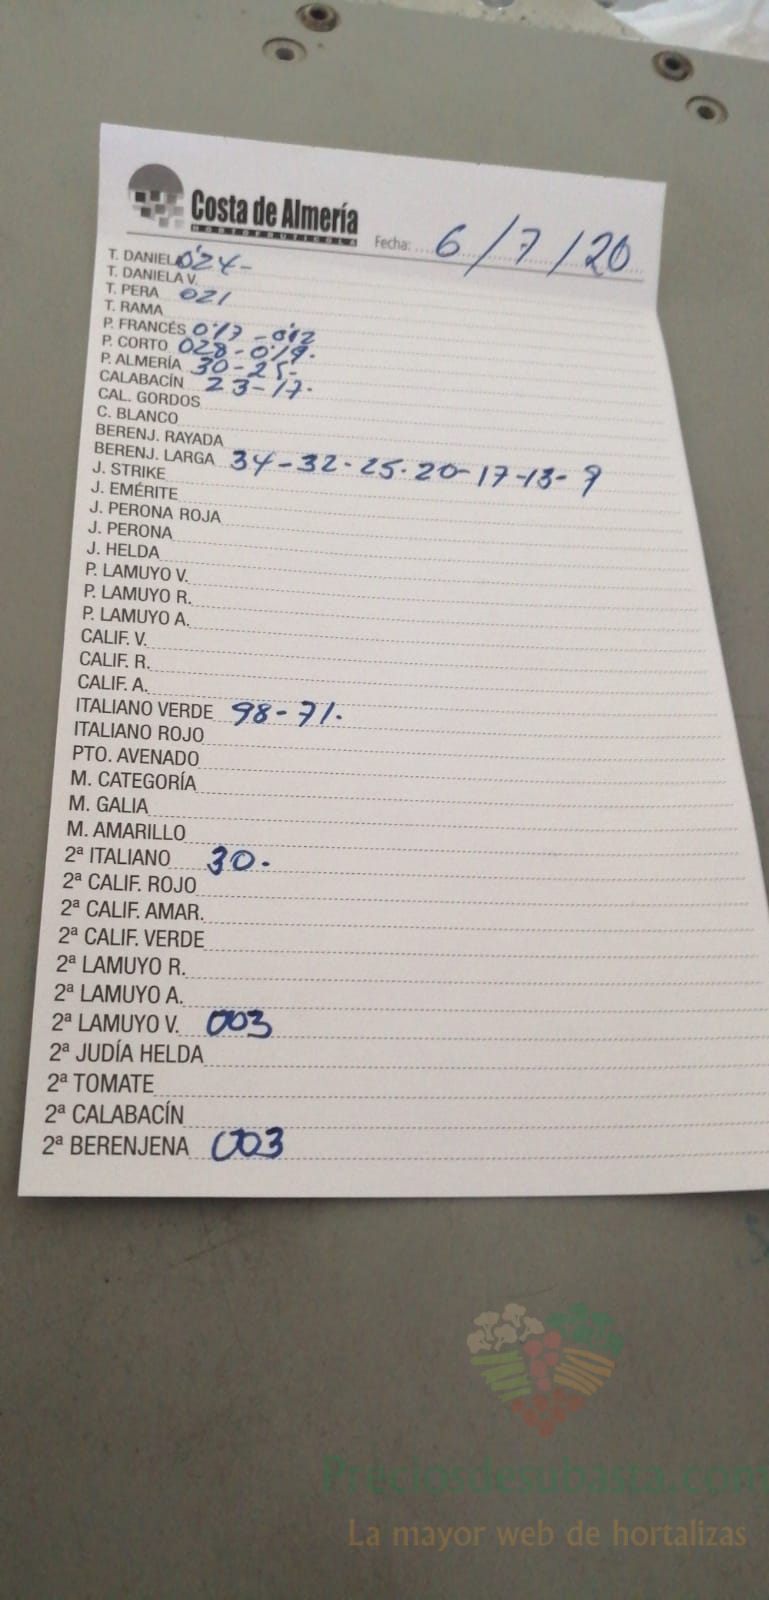 Costa de Almería
HORTOFRUTICOLA
Fecha: 6/7/20
T. DANIELA 0'24-
T. DANELA V.
T. PERA 021
T. RAMA
P. FRANCÉS 0'17 - 0'12
P. CORTO 028-0'19.
P. ALMERÍA 30-25-
CALABACÍN 23-17.
CAL. GORDOS
C. BLANCO
BERENJ. RAYADA
BERENJ. LARGA 34-32-25.20-17-13-9
J. STRIKE
J. EMÉRITE
J. PERONA ROJA
J. PERONA
J. HELDA
P. LAMUYO V.
P. LAMUYO R.
P. LAMUYO A.
CALIF. V.
CALIF. R.
CALIF. A.
ITALIANO VERDE 98-71.
ITALIANO ROJO
PTO. AVENADO
M. CATEGORÍA
M. GALIA
M. AMARILLO
2ª ITALIANO 30.
2ª CALIF. ROJO
2ª CALIF. AMAR.
2ª CALIF. VERDE
2ª LAMUYO R.
2ª LAMUYO A.
2ª LAMUYO V. 003
2ª JUDÍA HELDA
2ª TOMATE
2ª CALABACÍN
2ª BERENJENA 003
Preciosdesubasta.com
La mayor web de hortalizas